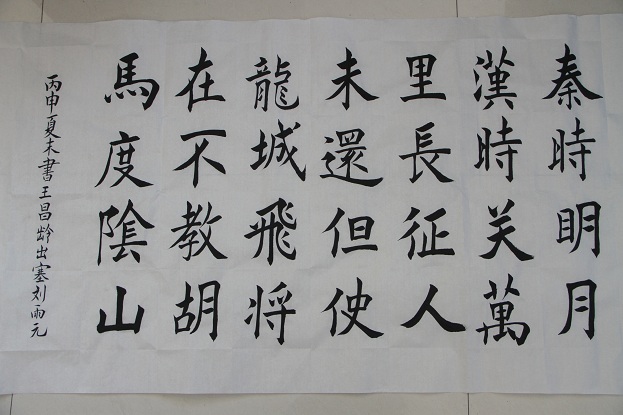 秦時明月
漢時关萬
里長征人
未還但使
龍城飛将
在不教胡
馬度陰山
丙申夏末書王昌龄出塞刘雨元